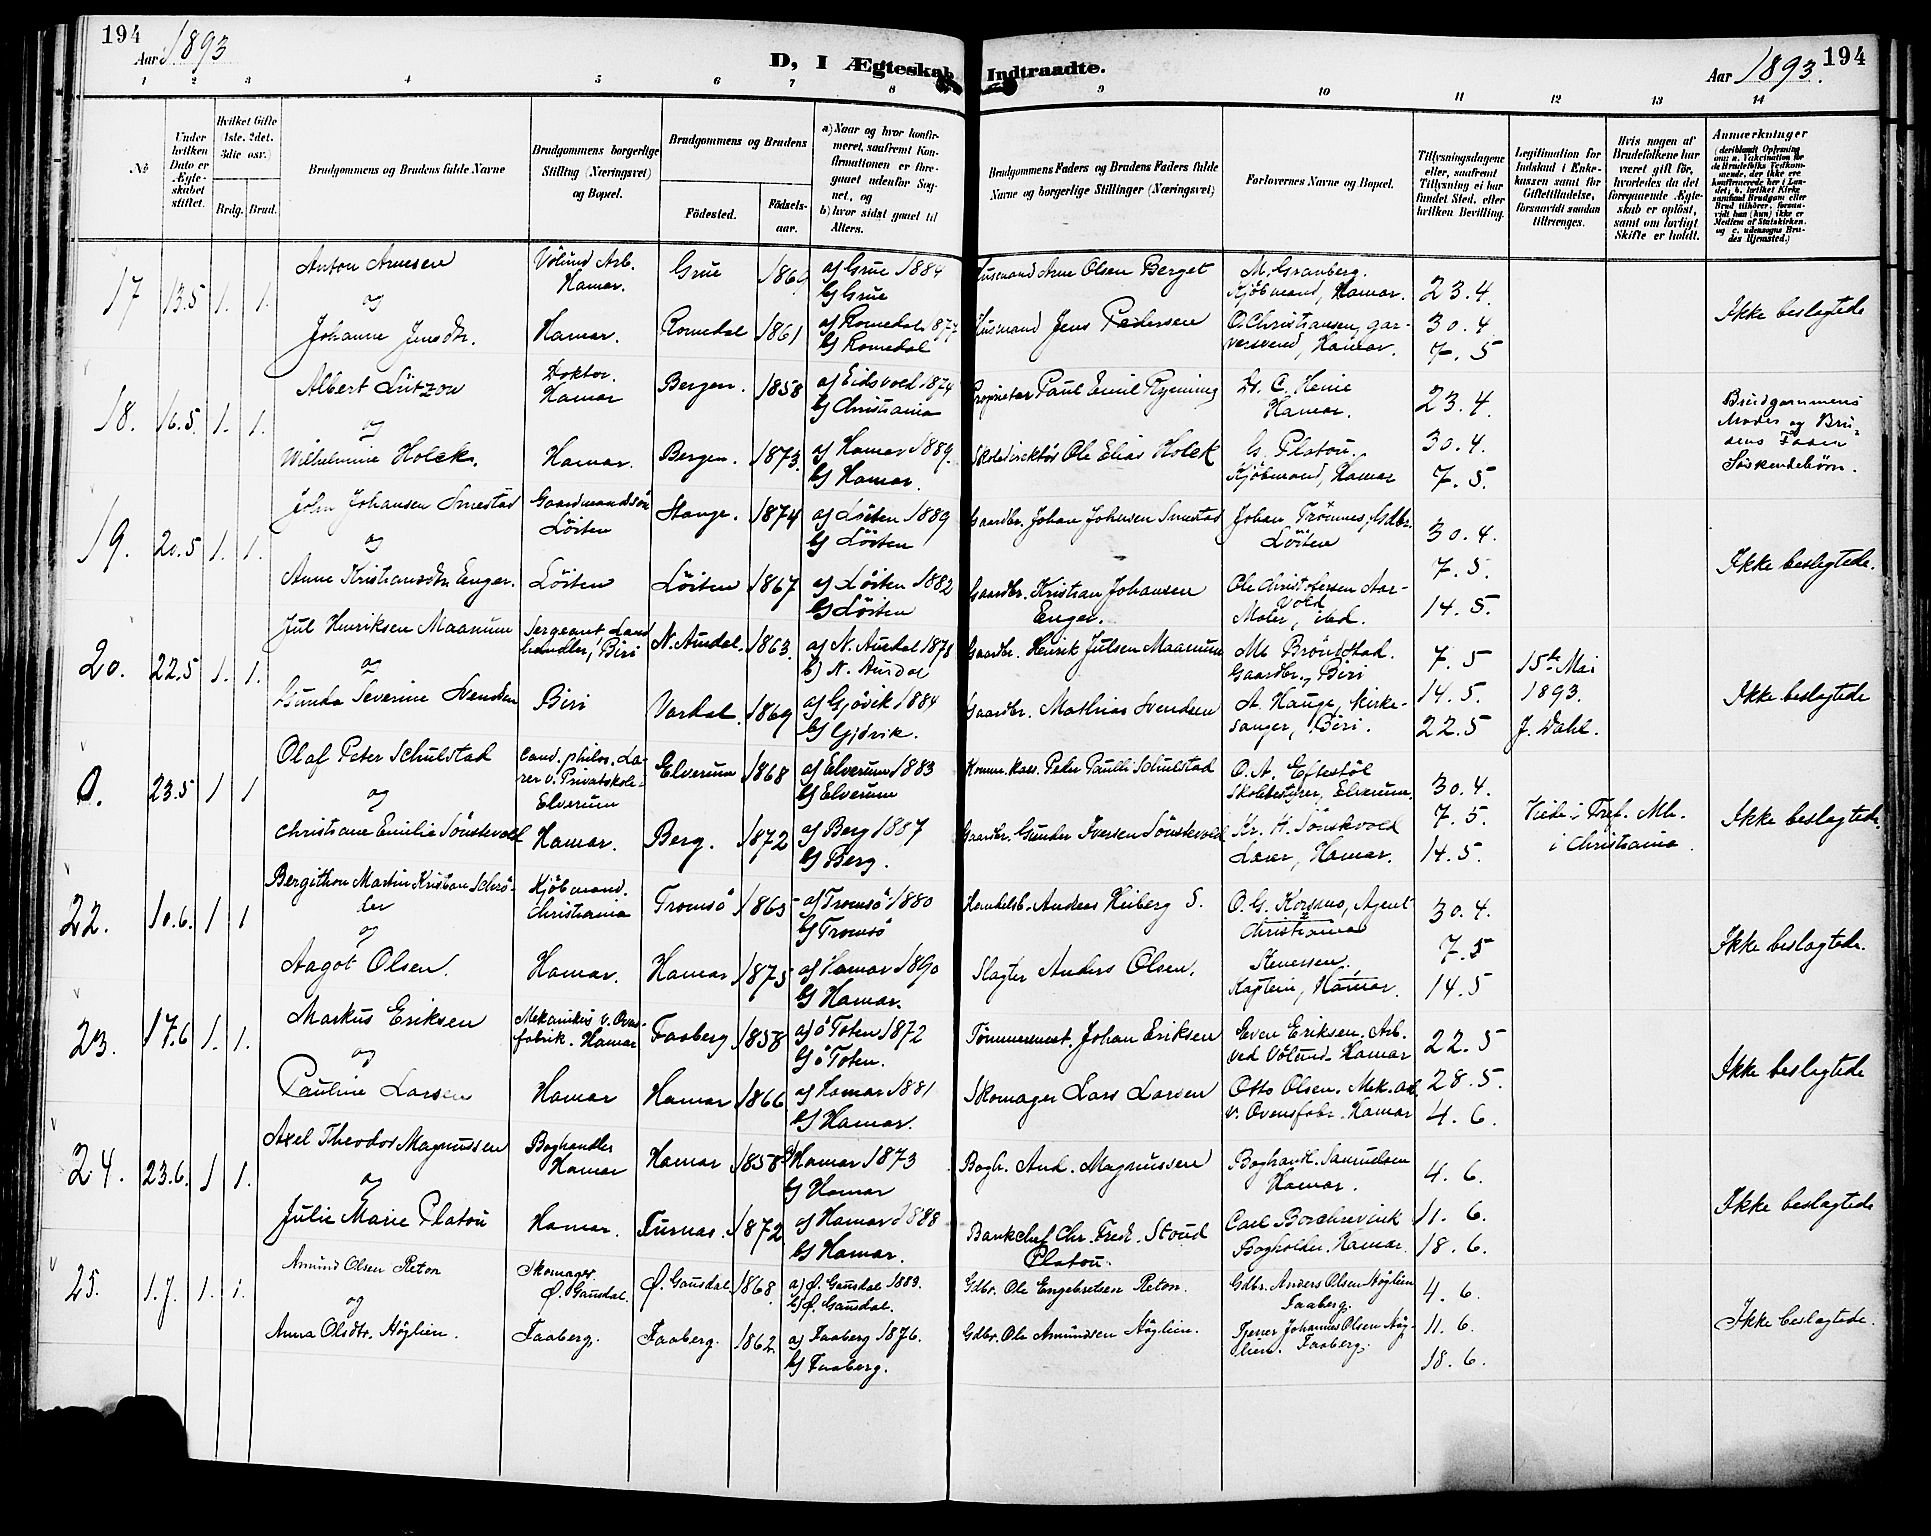 194
Aar 1893
D, I Ægteskab Indtraadte.
Aar 1893.
194
1 2 3 4 5 6 7 8 9 10 11 12 13 14
No
Under hvilken Dato er Ægteskabet stiftet.
Hvilket Gifte (1ste, 2det, 3die osv.)
Brdg. Brud.
Brudgommens og Brudens fulde Navne
Brudgommens borgerlige Stilling (Næringsvei) og Bopæl.
Brudgommens og Brudens
Fødested.
Fødselsaar.
a) Naar og hvor konfirmeret, saafremt Konfirmationen er foregaaet udenfor Sognet, og
b) hvor sidst gaaet til Alters.
Brudgommens Faders og Brudens Faders fulde Navne og borgerlige Stillinger (Næringsvei)
Forlovernes Navne og Bopæl.
Tillysningsdagene eller, saafremt Tillysning ei har fundet Sted, efter hvilken Bevilling.
Legitimation for Indskud i Enkekassen samt for Giftetilladelse, forsaavidt saadan tiltrænges.
Hvis nogen af Brudefolkene har været gift før, hvorledes da det foregaaende Ægteskab er opløst, samt om lovligt Skifte er holdt.
Anmærkninger
(deriblandt Oplysning om: a. Vaksination for de Brudefolks Vedkommende, der ikke ere konfirmerede her i Landet; b. hvilket Kirkesamfund Brudgom eller Brud tilhører, forsaavidt han (hun) ikke er Medlem af Statskirken, og c. udensogns Brudes Hjemsted.)
17 13.5 1. 1.
Anton Arnesen Vølund Arb. Hamar. Grue 186 a) Grue 1884 b) Grue Husmand Arne Olsen Berget M. Granberg. Kjøbmand, Hamar. 23.4.
og
Johanne Jensdtr. Hamar. Romedal 1861 a) Romedal 1877 b) Romedal Husmand Jens Pedersen O. Christiansen, garversvend, Hamar. 30.4 7.5 Ikke beslegtede
18. 16.5. 1. 1.
Albert Lützow Doktor. Hamar Bergen. 1858 a) Eidsvold 1874 b) Christiania Proprietær Paul Emil Rynning Dr. C. Heine Hamar. 23.4.
og
Wilhelmine Holck. Hamar. Bergen. 1873. a) Hamar 1889. b) Hamar. Skoledirektør Ole Elias Holck G. Platou. Kjøbmand, Hamar 30.4. 7.5. Brudgommens Moder og Brudens Fader Søskendebørn.
19. 20.5 1. 1.
John Johansen Smestad Gaardmandssøn Løiten Stange. 1874 a) Løiten 1889 b) Løiten Gaardbr. Johan Johnsen Smestad Johan Trønnes, Gdbr. Løiten 30.4.
og
Anne Kristiansdtr. Enger. Løiten Løiten 1867 a) Løiten 1882 b) Løiten Gaardbr. Kristian Johansen Enger. Ole Christofersen Aarvold Maler, ibd. 7.5. 14.5. Ikke beslegtede.
20. 22.5 1. 1.
Jul Henriksen Maanum Sergeant, Landhandler, Biri N. Aurdal. 1863. a) N. Aurdal 1878 b) N. Aurdal Gaardbr. Henrik Julsen Maanum Me Brøndstad. Gaardbr., Biri 7.5 15de Mai
og
Gunda Severine Svendsen Biri Vardal. 1869 a) Gjøvik 1884 b) Gjøvik. Gaardbr. Mathias Svendsen A. Hauge, Kirkesanger, Biri. 14.5. 22.5 1893. J. Dahl. Ikke beslegtede
0. 23.5 1 1
Olaf Peter Schulstad Cand. philos. Lærer v. Privatskole. Elverum Elverum 1868 a) Elverum 1883 b) Elverum Komm. kas. Peder Paulli Schulstad O. A. Eftestøl Skolebestyrer, Elverum. 30.4.
og
Christiane Emilie Sønskvold Hamar. Berg. 1872 a) Berg 1887 b) Berg. Gaardbr. Gunder Iversen Sønskvold Kr. H. Sønskvold Lærer, Hamar. 7.5. 14.5. Viede i Tref. Me. i Christiania. Ikke beslegtede.
22. 10.6. 1 1
Bergithon Martin Kristian Schrøder Kjøbmand. Christiania Tromsø 1865 a) Tromsø 1880 b) Tromsø Handelsb. Andreas Heiberg S. O. G. Korsmo, Agent Christiania 30.4.
og
Aagot Olsen. Hamar. Hamar 1875 a) Hamar 1890 b) Hamar. Slagter Anders Olsen. Kaptein, Hamar. 7.5 14.5 Ikke beslegtede.
23. 17.6 1. 1.
Markus Eriksen Mekanikus v. Ovnsfabrik. Hamar Faaberg 1858 a) Ø Toten 1872 b) Ø Toten. Tømmermest. Johan Eriksen Even Eriksen. Arb. ved Vølund. Hamar 22.5
og
Pauline Larsen Hamar Hamar 1866 a) Hamar 1881 b) Hamar. Skomager Lars Larsen Otto Olsen. Mek.arb. v. Ovensfabr. Hamar 28.5. 4.6. Ikke beslegtede
24. 23.6. 1 1.
Axel Theodor Magnussen Boghandler Hamar Hamar 1858 a) Hamar 1873 b) Hamar Bogh. And. Magnussen Boghandl. Samuelsen Hamar. 4.6.
og
Julie Marie Platou Hamar. Furnæs. 1872 a) Hamar 1888 b) Hamar. Bankchef Chr. Fredr. Stoud Platou. Carl Borchrevink Bogholder. Hamar. 11.6. 18.6. Ikke beslegtede
25. 1.7. 1. 1.
Amund Olsen Reton Skomager Ø. Gausdal. Ø. Gausdal 1868. a) Ø. Gausdal 1883. b) Ø. Gausdal. Gdbr. Ole Engebretsen Reton. Gdbr. Anders Olsen Høglien Faaberg. 4.6.
og
Anna Olsdtr. Høglien. Faaberg. Faaberg. 1862. a) Faaberg 1876. b) Faaberg. Gdbr. Ole Amundsen Høglien. Tjener Johannes Olsen Høglien. Faaberg. 11.6. 18.6. Ikke beslegtede.